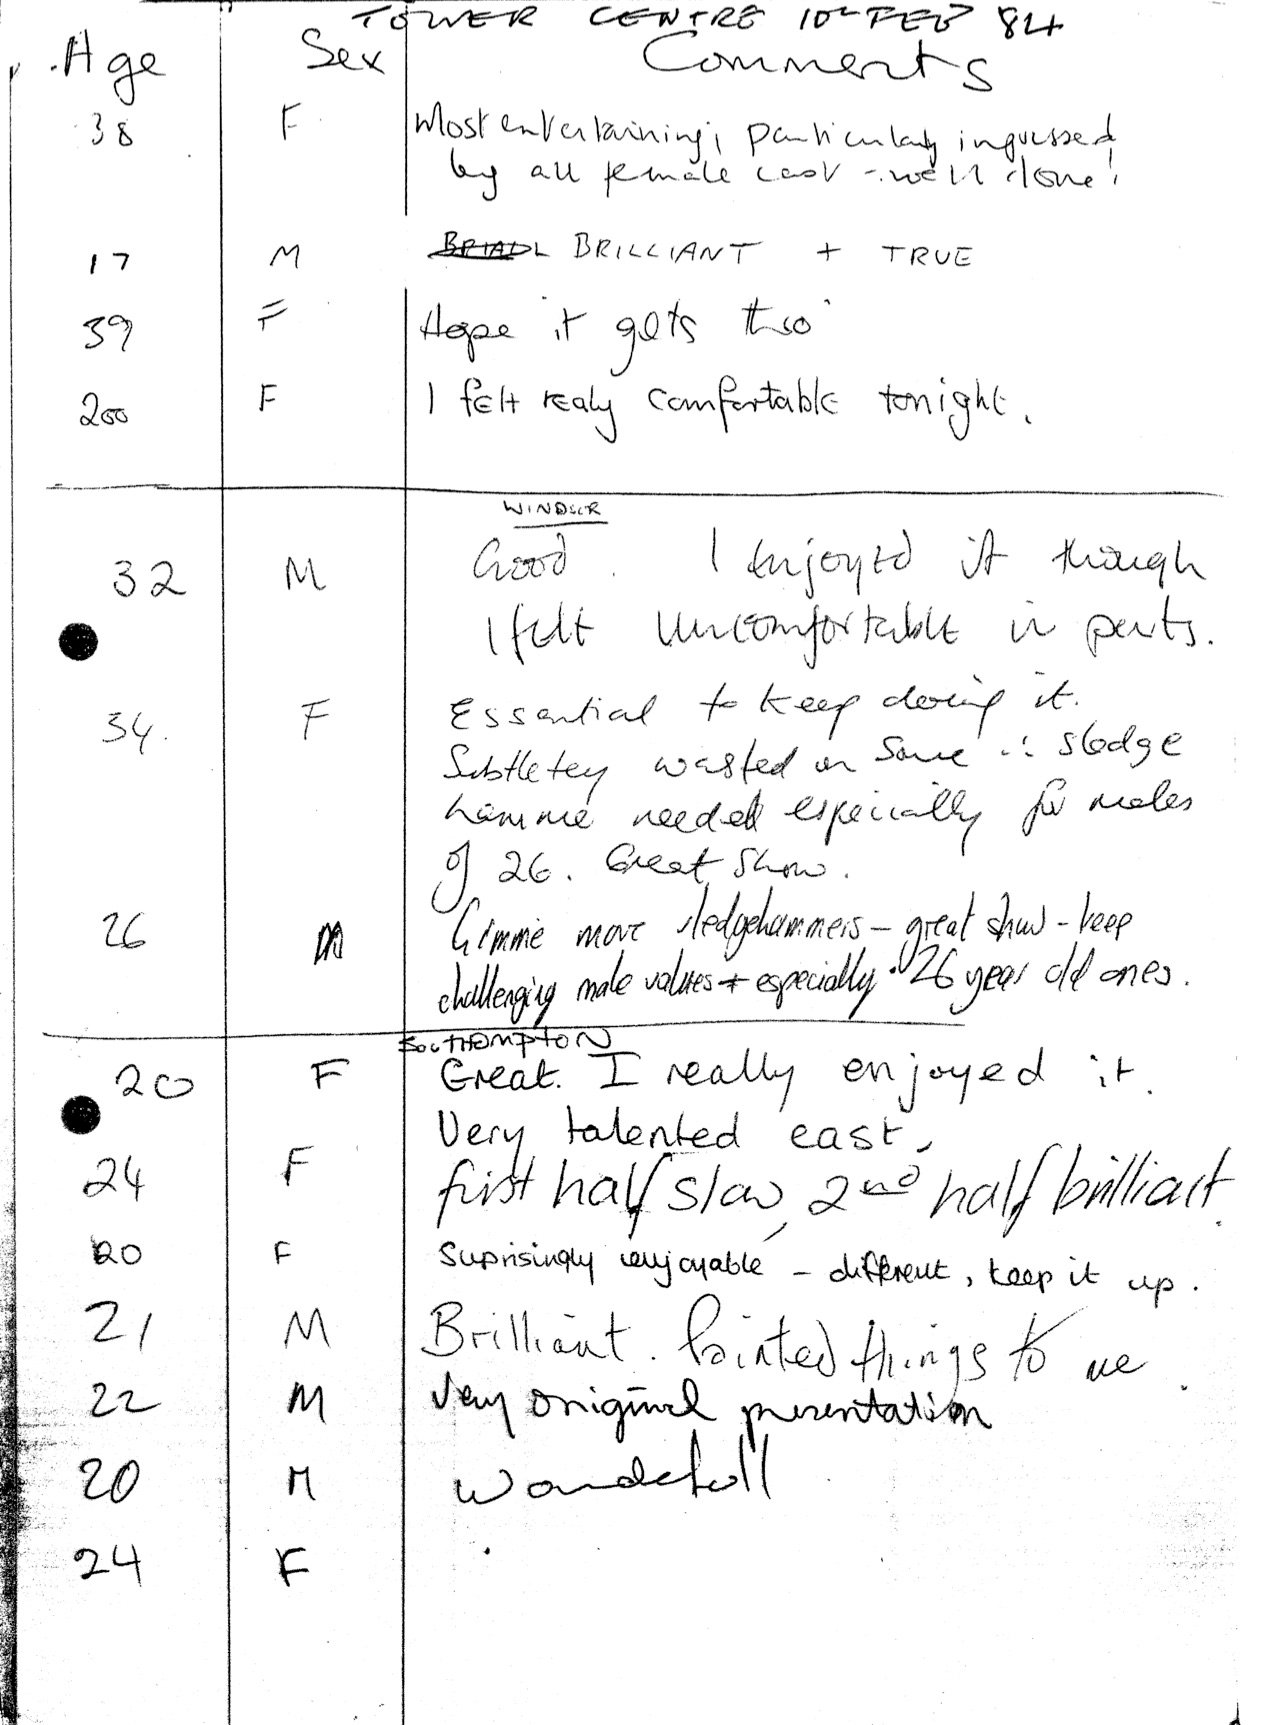 TOWER CENTRE 10th FEB 84
Age Sex Comments
38 F Most entertaining, particularly impressed
by all female cast - well done!
17 M BRILLIANT + TRUE
39 F Hope it gets thro'
200 F I felt realy comfortable tonight.
WINDSOR
32 M Good. I enjoyed it though
I felt uncomfortable in parts.
34. F Essential to keep doing it.
Subtletey wasted on some ∴ sledge
hamme needed especially for males
of 26. Great show.
26 M Gimme more sledgehammers - great show - keep
challenging male values + especially 26 year old ones.
SOUTHAMPTON
20 F Great. I really enjoyed it.
Very talented cast.
24 F first half slow, 2nd half brilliant.
20 F Suprisingly enjoyable - different, keep it up.
21 M Brilliant. Pointed things to me.
22 M Very original presentation
20 M Wondefull
24 F